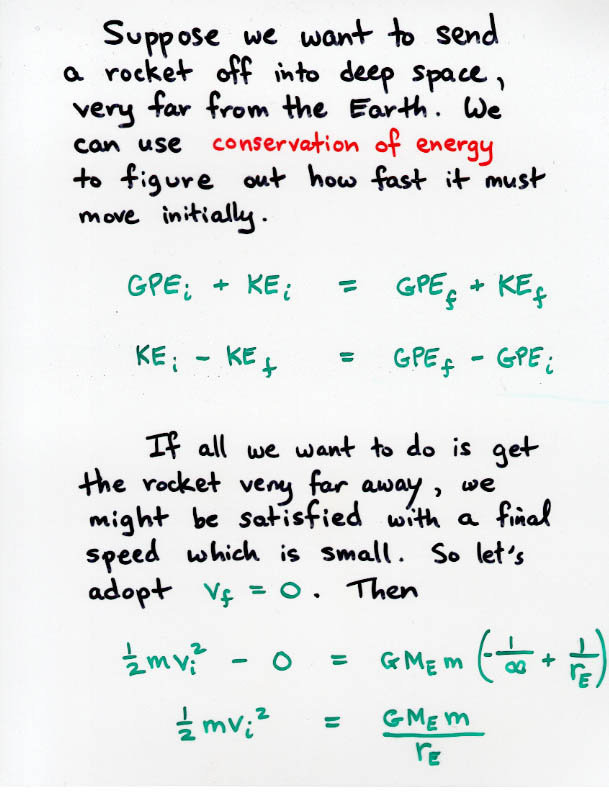 Suppose we want to send
a rocket off into deep space,
very far from the Earth. We
can use conservation of energy
to figure out how fast it must
move initially.
GPE_i + KE_i = GPE_f + KE_f
KE_i - KE_f = GPE_f - GPE_i
If all we want to do is get
the rocket very far away, we
might be satisfied with a final
speed which is small. So let's
adopt v_f = 0. Then
1/2 mv_i² - 0 = GM_E m (-1/∞ + 1/r_E)
1/2 mv_i² = GM_E m / r_E